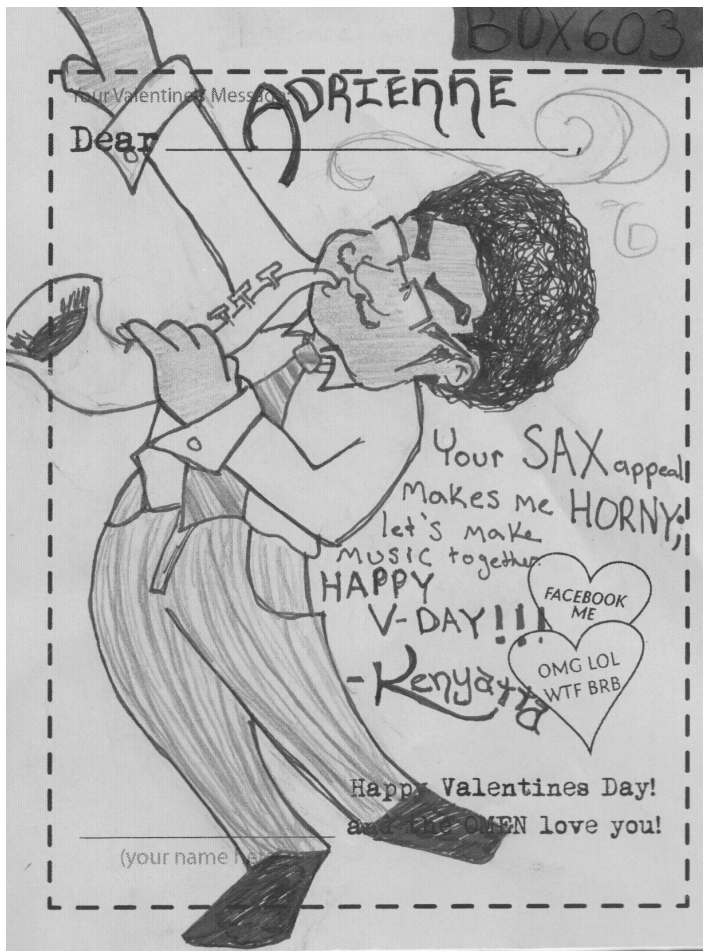 BOX603
Your Valentine's Message:
Dear ADRIENNE,
Your SAX appeal
makes me HORNY;
let's make
music together.
HAPPY
V-DAY!!!
-Kenyatta
FACEBOOK
ME
OMG LOL
WTF BRB
Happy Valentines Day!
and the OMEN love you!
(your name here)